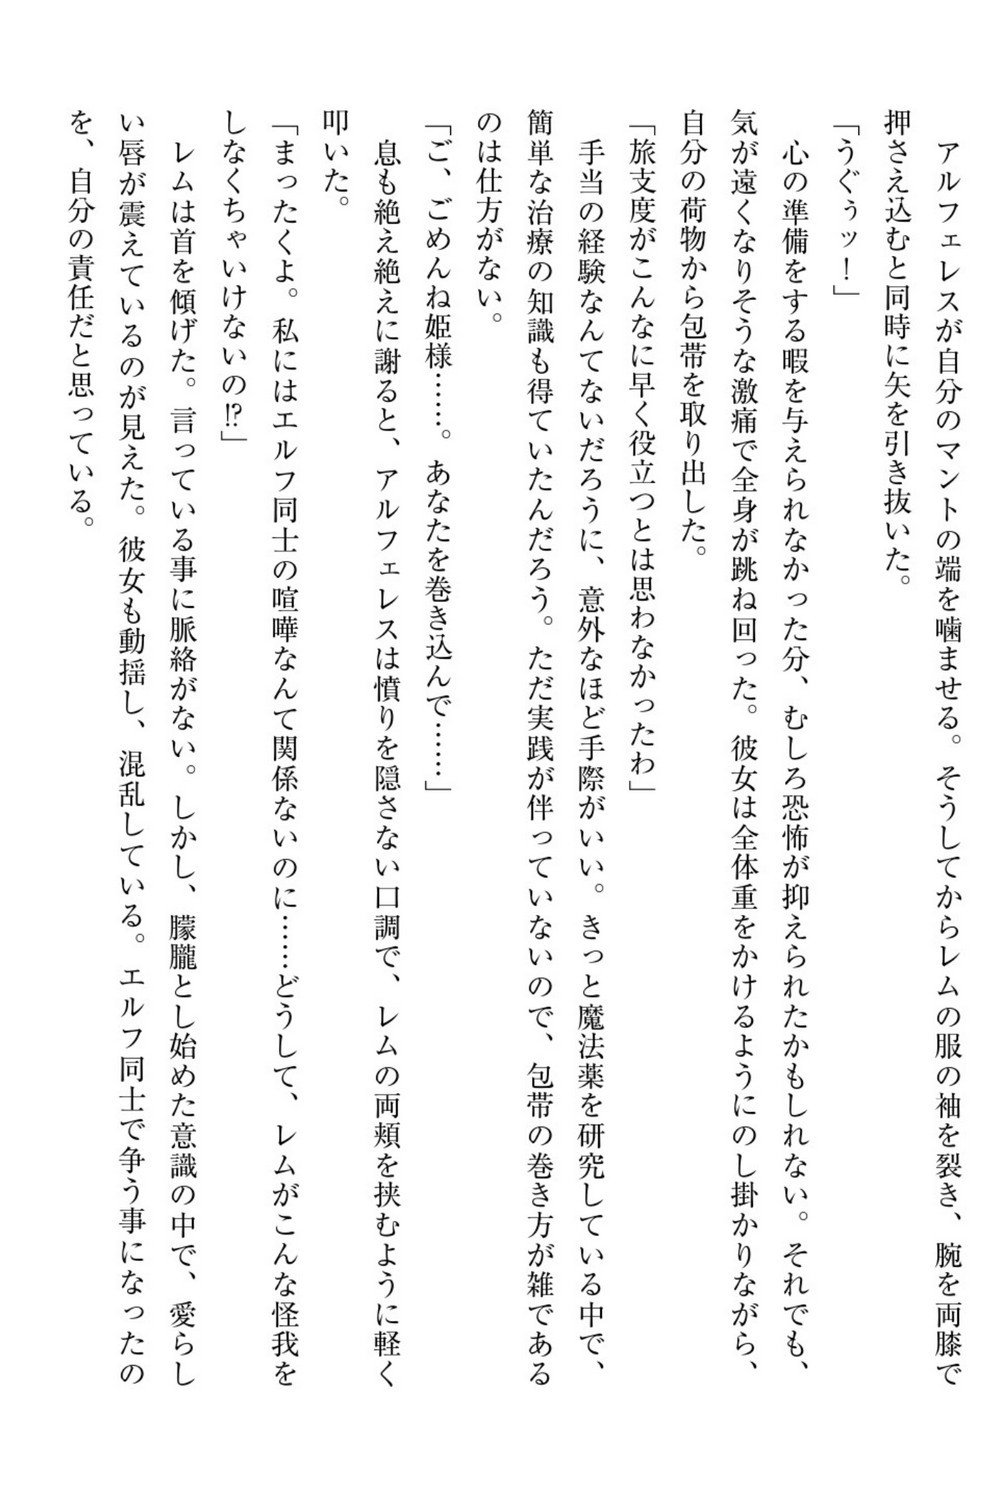 アルフェレスが自分のマントの端を噛ませる。そうしてからレムの服の袖を裂き、腕を両膝で
押さえ込むと同時に矢を引き抜いた。
「うぐぅッ！」
心の準備をする暇を与えられなかった分、むしろ恐怖が抑えられたかもしれない。それでも、
気が遠くなりそうな激痛で全身が跳ね回った。彼女は全体重をかけるようにのし掛かりながら、
自分の荷物から包帯を取り出した。
「旅支度がこんなに早く役立つとは思わなかったわ」
手当の経験なんてないだろうに、意外なほど手際がいい。きっと魔法薬を研究している中で、
簡単な治療の知識も得ていたんだろう。ただ実践が伴っていないので、包帯の巻き方が雑である
のは仕方がない。
「ご、ごめんね姫様……。あなたを巻き込んで……」
息も絶え絶えに謝ると、アルフェレスは憤りを隠さない口調で、レムの両頬を挟むように軽く
叩いた。
「まったくよ。私にはエルフ同士の喧嘩なんて関係ないのに……どうして、レムがこんな怪我を
しなくちゃいけないの⁉」
レムは首を傾げた。言っている事に脈絡がない。しかし、朦朧とし始めた意識の中で、愛らし
い唇が震えているのが見えた。彼女も動揺し、混乱している。エルフ同士で争う事になったの
を、自分の責任だと思っている。